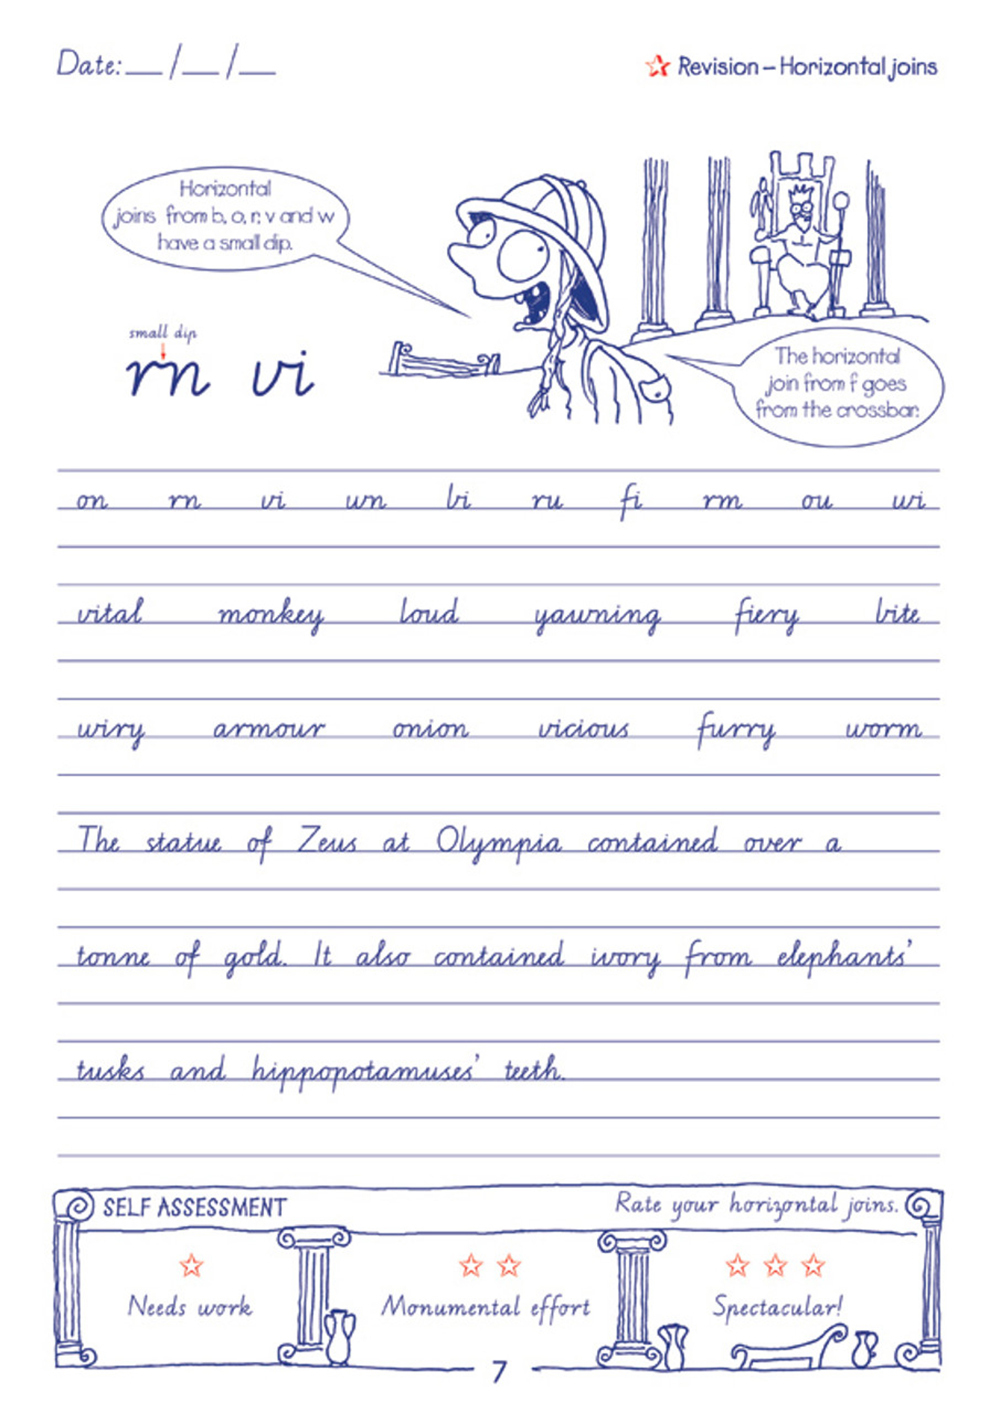 Date: __ / __ / __
Revision – Horizontal joins
Horizontal
joins from b, o, r, v and w
have a small dip.
small dip
rn vi
The horizontal
join from f goes
from the crossbar.
on rn vi wn bi ru fi rm ou wi
vital monkey loud yawning fiery bite
wiry armour onion vicious furry worm
The statue of Zeus at Olympia contained over a
tonne of gold. It also contained ivory from elephants'
tusks and hippopotamuses' teeth.
SELF ASSESSMENT
Rate your horizontal joins.
Needs work
Monumental effort
Spectacular!
7